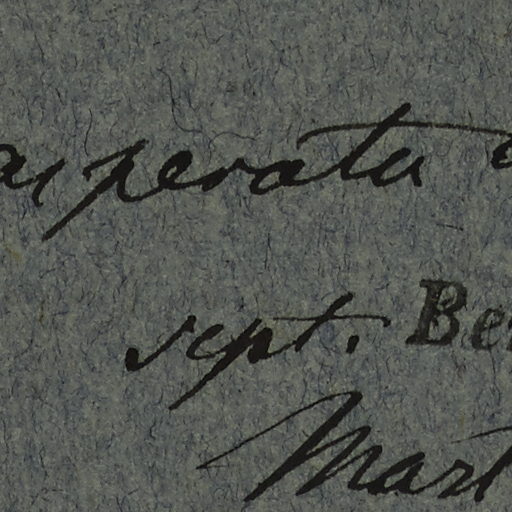 asperata
sept. Be
Mart